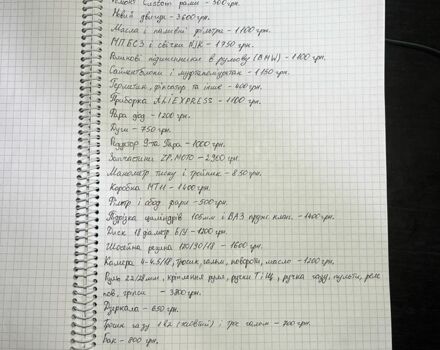 Custom рами - 500 грн.
Новий двигун - 3600 грн.
Масла і паливні фільтри - 1100 грн.
МПБСЗ і свічки NJK - 1750 грн.
Роликові підшипники в рульову (BMW) - 1100 грн.
Сайлентблоки і - 1150 грн.
Герметик, фіксатор та інше - 400 грн.
Приборка ALIEXPRESS - 1100 грн.
Фара діод - 1200 грн.
Дуги - 750 грн.
Редуктор 9-та пара - 1000 грн.
Запчастини ZP.MOTO - 2900 грн.
Манометр тиску і трійник - 850 грн.
Коробка МТ11 - 1400 грн.
Фільтр і обод фари - 500 грн.
циліндрів 106мм і ВАЗ пруж. клап. - 1400 грн.
Диск 18 діаметр Б/У - 1200 грн.
Шосейна резина 170/90/18 - 1600 грн.
Камера 4-4.5/18, троси гальм, повороти, масло - 1200 грн.
Руль 22/28мм, кріплення руля, ручки Г і Щ, ручка газу, пульти, реле
пов, гріпси - 3800 грн.
Дзеркала - 650 грн.
Троси газу і трос гальм - 700 грн.
Бак - 800 грн.